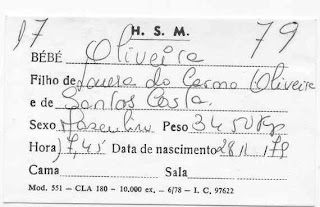 17 H. S. M. 79
BÉBÉ Oliveira
Filho de do Carmo Oliveira
e de Santos Costa.
Sexo Masculino Peso 3450 Kg
Hora 17,45 Data de nascimento 28 11 179
Cama Sala
Mod. 551 - CLA 180 - 10.000 ex. - 6/78 - I. C. 97622